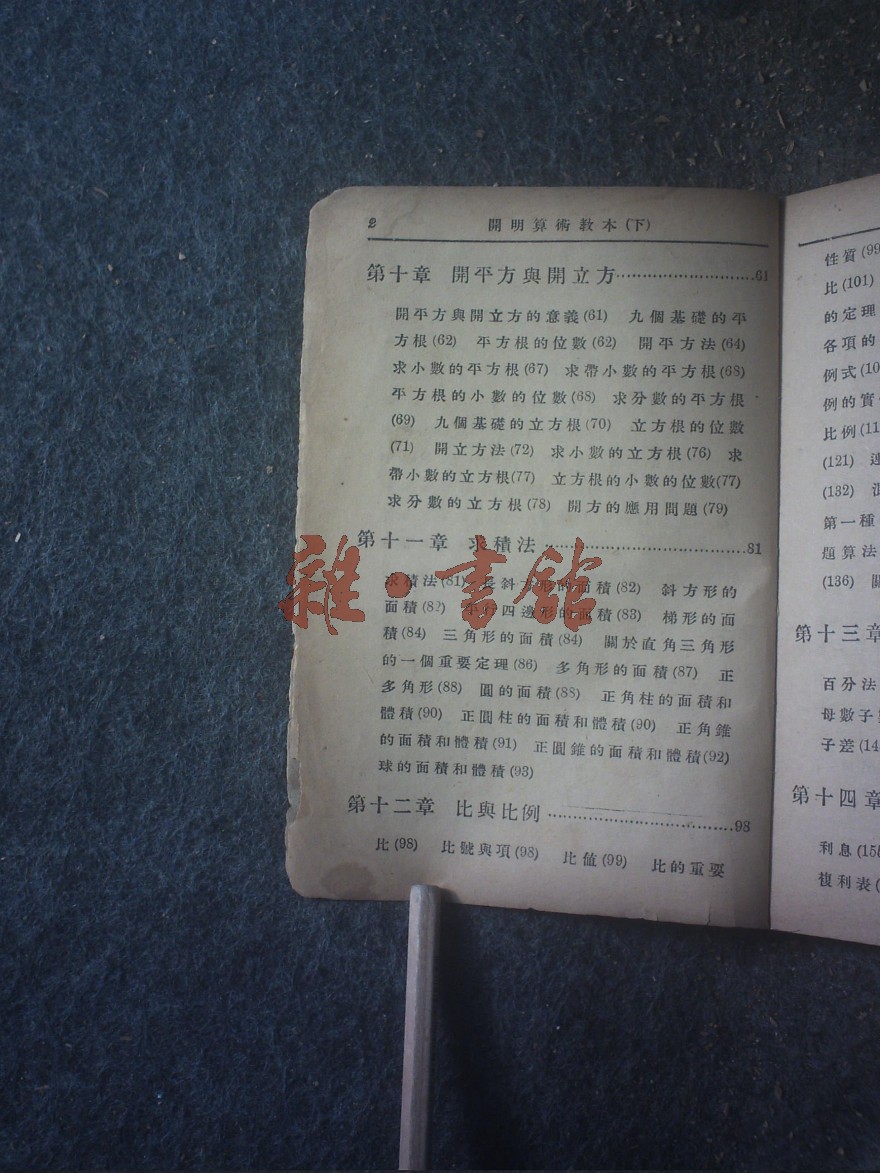 2 開明算術教本(下)
第十章 開平方與開立方……………………61
開平方與開立方的意義(61) 九個基礎的平
方根(62) 平方根的位數(62) 開平方法(64)
求小數的平方根(67) 求帶小數的平方根(68)
平方根的小數的位數(68) 求分數的平方根
(69) 九個基礎的立方根(70) 立方根的位數
(71) 開立方法(72) 求小數的立方根(76) 求
帶小數的立方根(77) 立方根的小數的位數(77)
求分數的立方根(78) 開方的應用問題(79)
第十一章 求積法……………………81
求積法(81) 長斜方形的面積(82) 斜方形的
面積(82) 平行四邊形的面積(83) 梯形的面
積(84) 三角形的面積(84) 關於直角三角形
的一個重要定理(86) 多角形的面積(87) 正
多角形(88) 圓的面積(88) 正角柱的面積和
體積(90) 正圓柱的面積和體積(90) 正角錐
的面積和體積(91) 正圓錐的面積和體積(92)
球的面積和體積(93)
第十二章 比與比例……………………98
比(98) 比號與項(98) 比值(99) 比的重要
雜·書館
性質(99
比(101)
的定理
各項的
例式(10
例的實
比例(11
(121)
(132)
第一種
題算法
(136)
第十三章
百分法
母數子
子差(14
第十四章
利息(155
複利表(